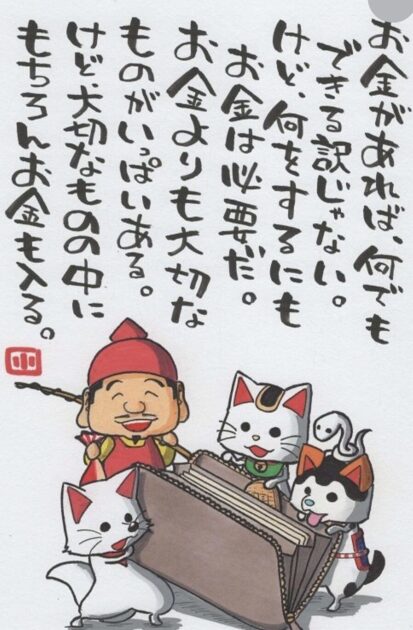 お金があれば、何でも
できる訳じゃない。
けど、何をするにも
お金は必要だ。
お金よりも大切な
ものがいっぱいある。
けど大切なものの中に
もちろんお金も入る。